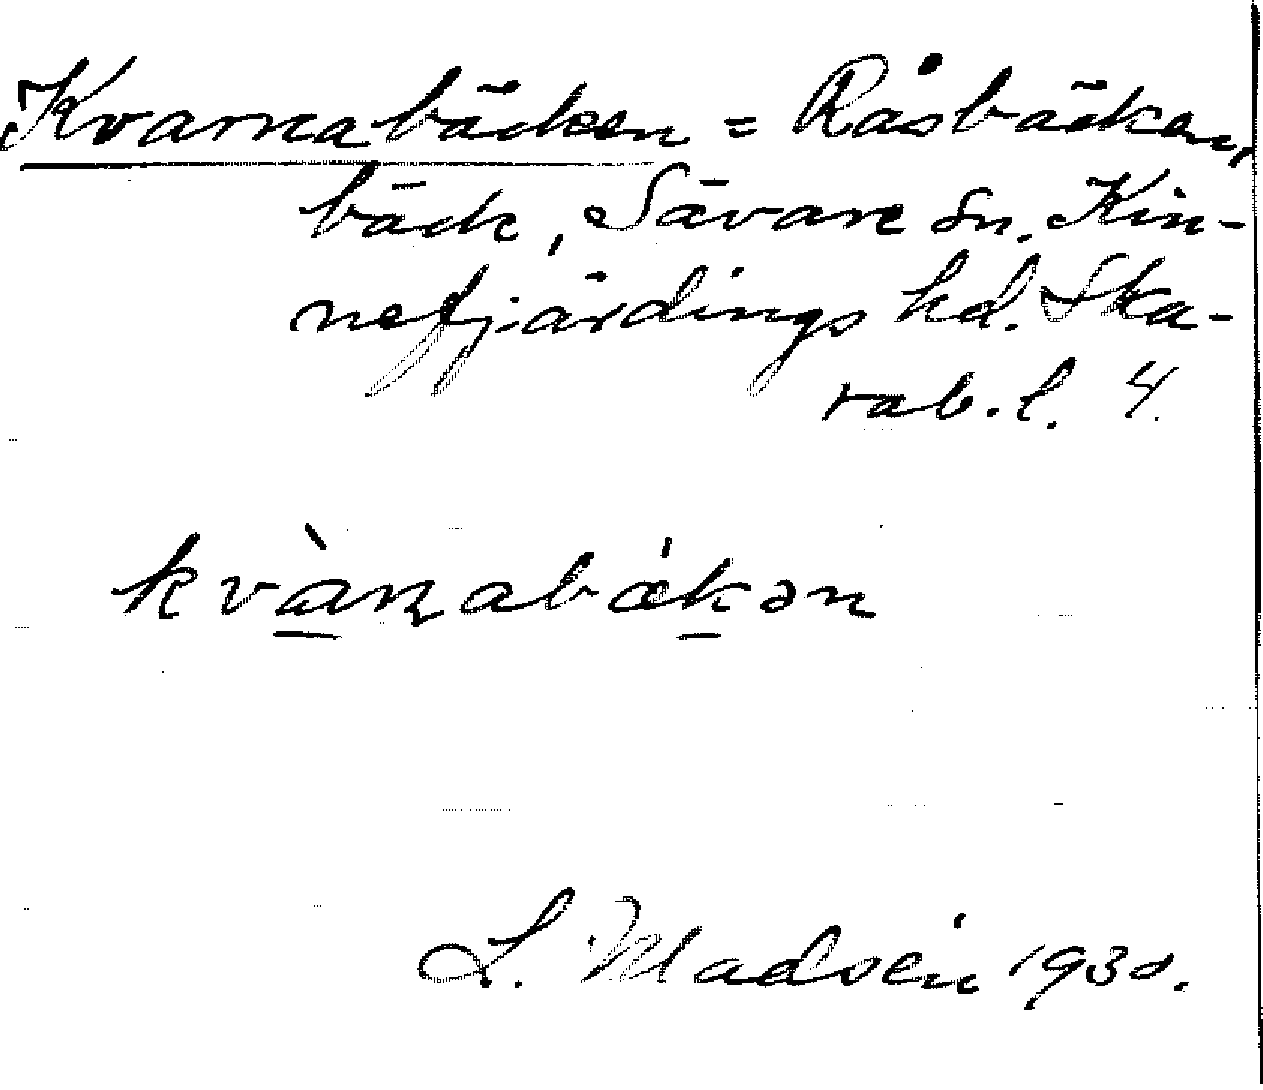 Kvarnabäcken = Råsbäcken,
bäck, Sävare sn. Kin-
nefjärdings hd. Ska-
rab. l. 4.
kvàɳabækən
L. Madvén 1930.